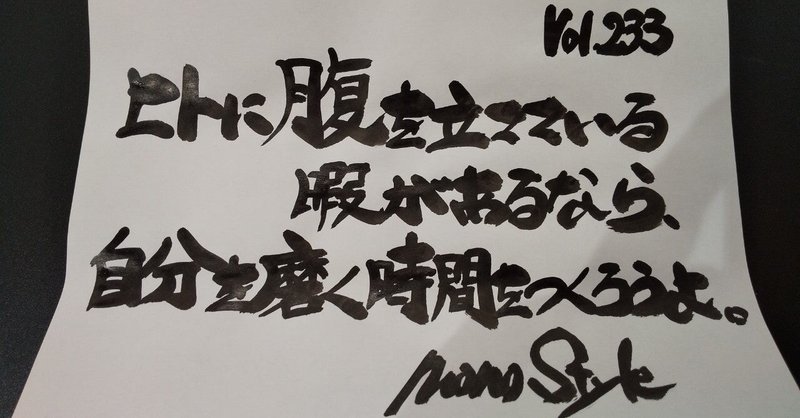 Vol.233
ヒトに腹を立てている
暇があるなら、
自分を磨く時間をつくろうよ。
nano Style